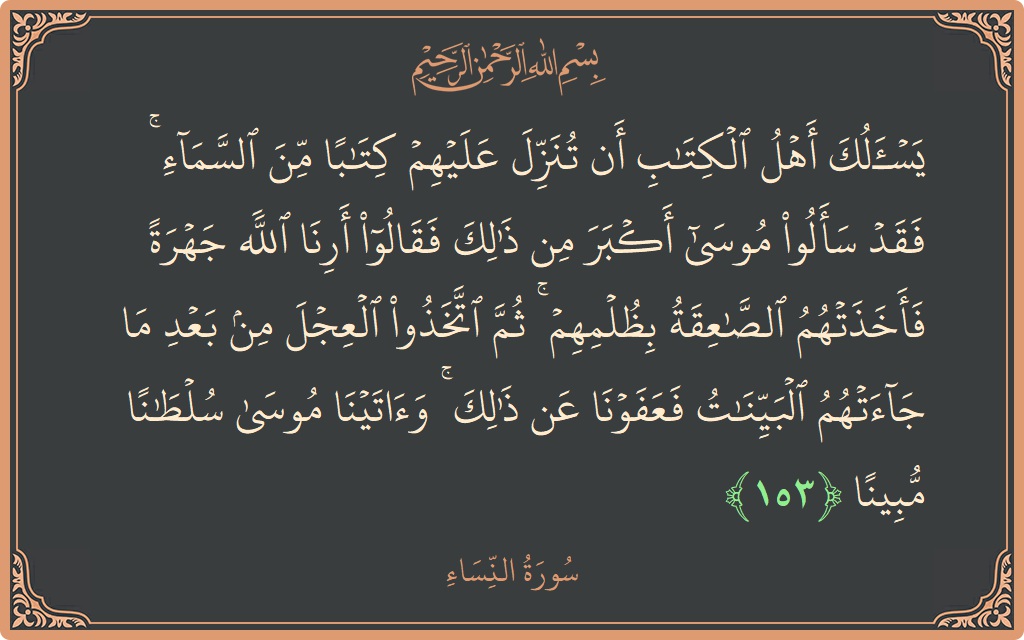 بِسْمِ اللَّهِ الرَّحْمَٰنِ الرَّحِيمِ
يَسْـَٔلُكَ أَهْلُ ٱلْكِتَـٰبِ أَن تُنَزِّلَ عَلَيْهِمْ كِتَـٰبًا مِّنَ ٱلسَّمَآءِ ۚ
فَقَدْ سَأَلُوا۟ مُوسَىٰٓ أَكْبَرَ مِن ذَٰلِكَ فَقَالُوٓا۟ أَرِنَا ٱللَّه جَهْرَةً
فَأَخَذَتْهُمُ ٱلصَّـٰعِقَةُ بِظُلْمِهِمْ ۚ ثُمَّ ٱتَّخَذُوا۟ ٱلْعِجْلَ مِنۢ بَعْدِ مَا
جَآءَتْهُمُ ٱلْبَيِّنَـٰتُ فَعَفَوْنَا عَن ذَٰلِكَ ۚ وَءَاتَيْنَا مُوسَىٰ سُلْطَـٰنًا
مُّبِينًا ﴿١٥٣﴾
سُورَةُ النِّسَاءِ